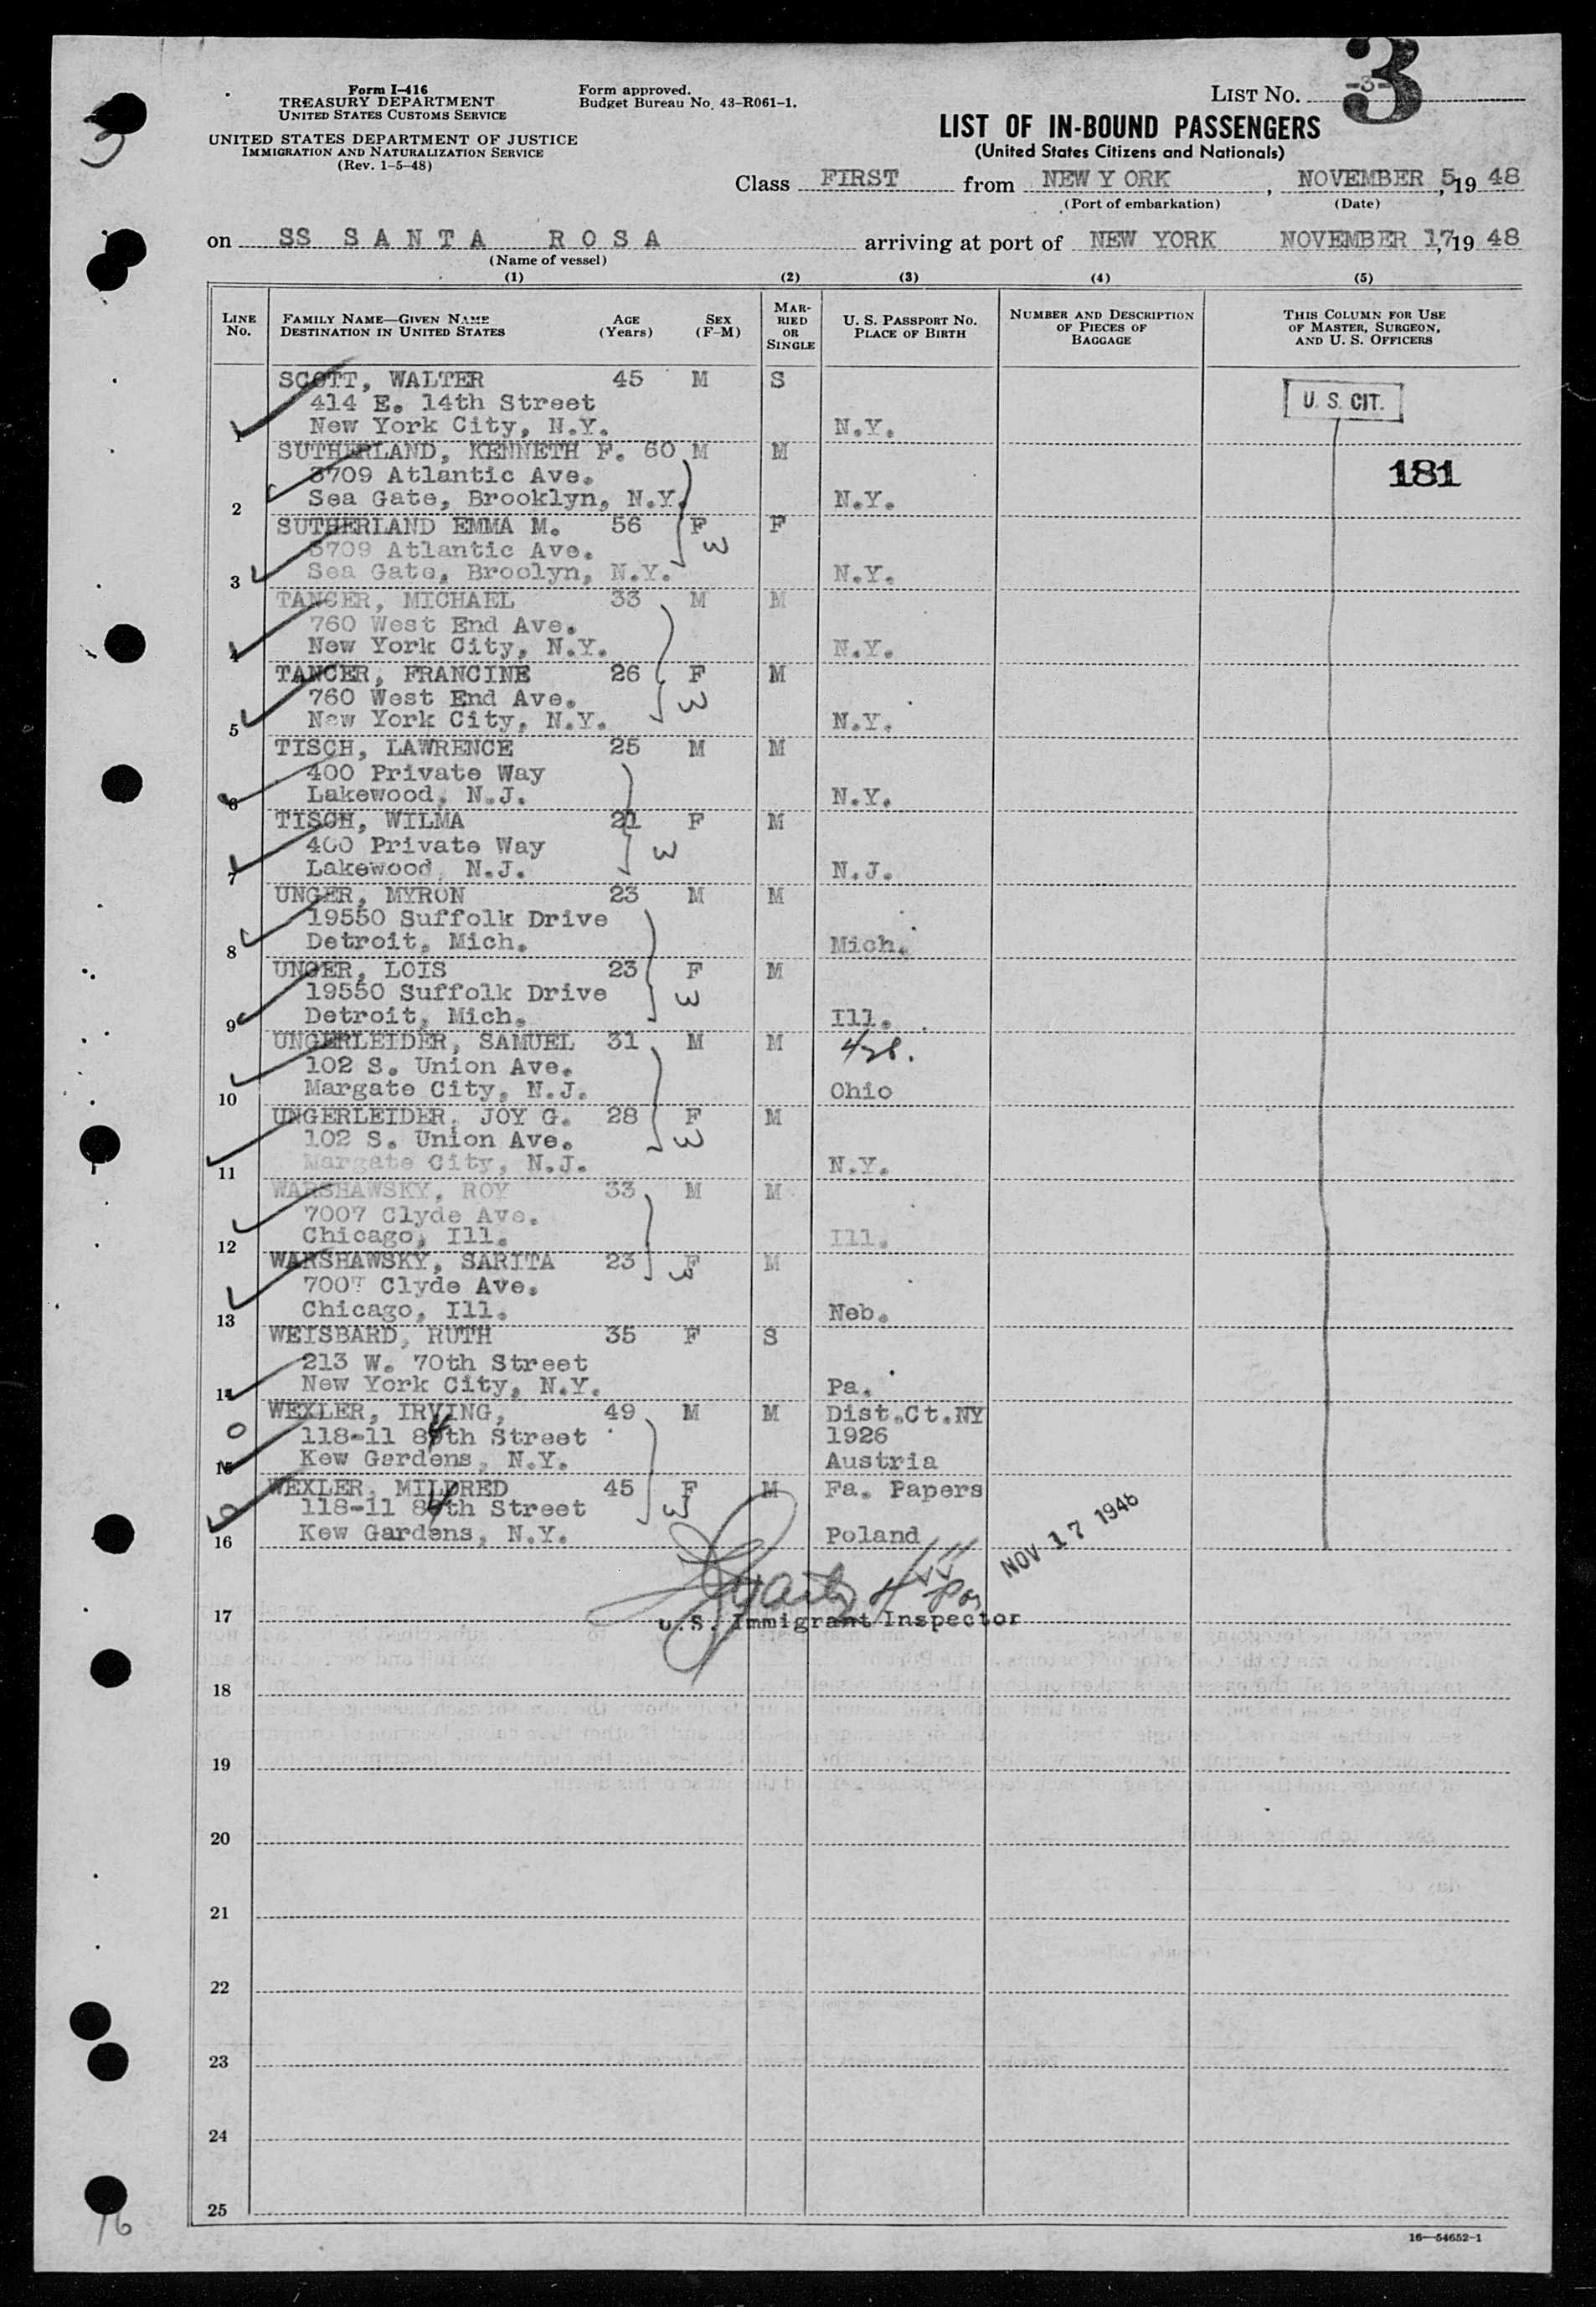 3
Form I-416
TREASURY DEPARTMENT
UNITED STATES CUSTOMS SERVICE
UNITED STATES DEPARTMENT OF JUSTICE
IMMIGRATION AND NATURALIZATION SERVICE
(Rev. 1-5-48)
Form approved.
Budget Bureau No. 43-R061-1.
LIST No. -3-
3
LIST OF IN-BOUND PASSENGERS
(United States Citizens and Nationals)
Class FIRST from NEW Y ORK, NOVEMBER 5, 19 48
(Port of embarkation) (Date)
on SS SANTA ROSA arriving at port of NEW YORK NOVEMBER 17, 19 48
(Name of vessel)
(1) (2) (3) (4) (5)
LINE No. FAMILY NAME—GIVEN NAME DESTINATION IN UNITED STATES AGE (Years) SEX (F-M) MARRIED OR SINGLE U. S. PASSPORT No. PLACE OF BIRTH NUMBER AND DESCRIPTION OF PIECES OF BAGGAGE THIS COLUMN FOR USE OF MASTER, SURGEON, AND U. S. OFFICERS
SCOTT, WALTER 45 M S
414 E. 14th Street U. S. CIT.
1 New York City, N.Y. N.Y.
SUTHERLAND, KENNETH F. 60 M M
3709 Atlantic Ave. 181
2 Sea Gate, Brooklyn, N.Y. N.Y.
SUTHERLAND EMMA M. 56 F F
3709 Atlantic Ave. 3
3 Sea Gate, Broolyn, N.Y. N.Y.
TANCER, MICHAEL 33 M M
760 West End Ave.
4 New York City, N.Y. N.Y.
TANCER, FRANCINE 26 F M
760 West End Ave. 3
5 New York City, N.Y. N.Y.
TISCH, LAWRENCE 25 M M
400 Private Way
6 Lakewood, N.J. N.Y.
TISCH, WILMA 21 F M
400 Private Way 3
7 Lakewood, N.J. N.J.
UNGER, MYRON 23 M M
19550 Suffolk Drive
8 Detroit, Mich. Mich.
UNGER, LOIS 23 F M
19550 Suffolk Drive 3
9 Detroit, Mich. Ill.
UNGERLEIDER, SAMUEL 31 M M
102 S. Union Ave.
10 Margate City, N.J. Ohio
UNGERLEIDER, JOY G. 28 F M
102 S. Union Ave. 3
11 Margate City, N.J. N.Y.
WARSHAWSKY, ROY 33 M M
7007 Clyde Ave.
12 Chicago, Ill. Ill.
WARSHAWSKY, SARITA 23 F M
7007 Clyde Ave. 3
13 Chicago, Ill. Neb.
WEISBARD, RUTH 35 F S
213 W. 70th Street
14 New York City, N.Y. Pa.
WEXLER, IRVING, 49 M M Dist.Ct.NY
118-11 84th Street 1926
15 Kew Gardens, N.Y. Austria
WEXLER, MILDRED 45 F M Fa. Papers
118-11 84th Street 3
16 Kew Gardens, N.Y. Poland
NOV 17 1948
17 U.S. Immigrant Inspector
18
19
20
21
22
23
24
25
16
16—54652-1